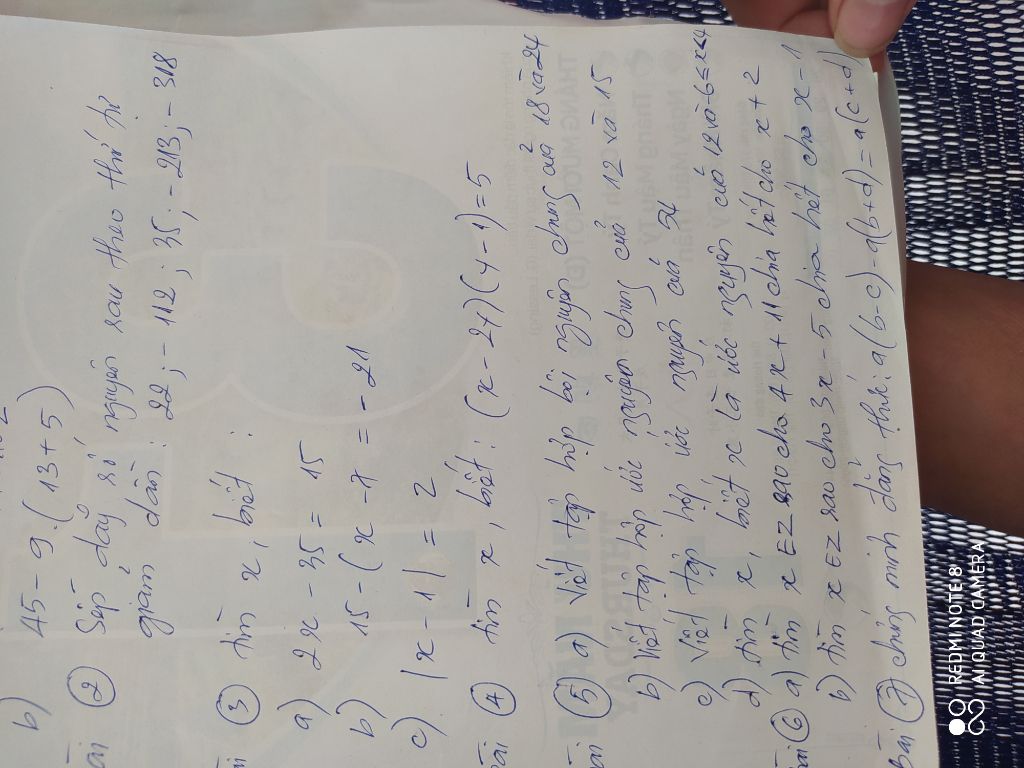 b) 45 - 9.(13 + 5)
Bài ② Sắp dãy số nguyên sau theo thứ tự
giảm dần: 22; - 112; 35; - 213; - 318
Bài ③ tìm x, biết :
a) 2x - 35 = 15
b) 15 - (x - 7) = - 21
c) |x - 1| = 2
Bài ④ tìm x, biết: (x - 2+) (y - 1) = 5
Bài ⑤ a) Viết tập hợp bội nguyên chung của 18 và 24
b) Viết tập hợp ước nguyên chung của 12 và 15
c) Viết tập hợp ước nguyên của 54
d) tìm x, biết x là ước nguyên của 12 và -6 ≤ x ≤ 4
Bài ⑥ a) tìm x ∈ Z sao cho 4x + 11 chia hết cho x + 2
b) tìm x ∈ Z sao cho 3x - 5 chia hết cho x - 1
Bài ⑦ chứng minh đẳng thức: a(b-c) - a(b+d) = a(c+d)
REDMI NOTE 8
AI QUAD CAMERA